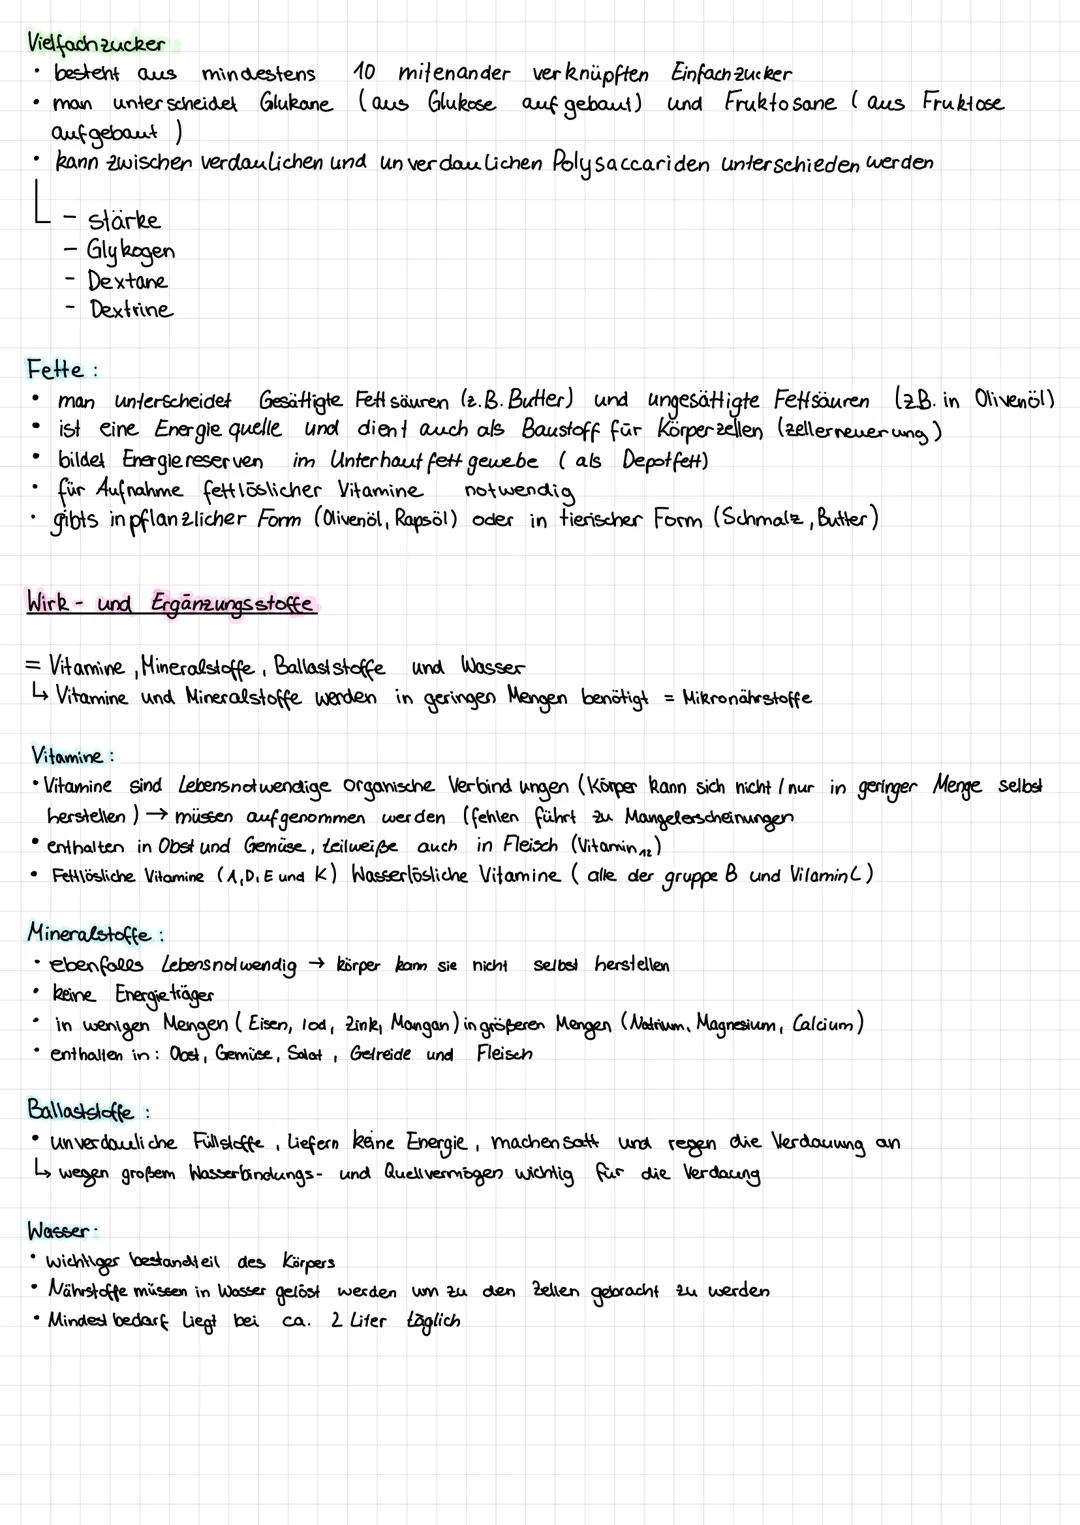 Vielfachzucker
• besteht aus mindestens 10 mitenander verknüpften Einfachzucker
• man unterscheidet Glukane (aus Glukose aufgebaut) und Fruktosane (aus Fruktose
aufgebaut)
• kann zwischen verdaulichen und unverdaulichen Polysaccariden unterschieden werden
- stärke
- Glykogen
- Dextane
- Dextrine
Fette:
• man unterscheidet Gesättigte Fettsäuren (z.B. Butter) und ungesättigte Fettsäuren (z.B. in Olivenöl)
• ist eine Energiequelle und dient auch als Baustoff für Körperzellen (zellerneuerung)
• bildet Energiereserven im Unterhautfettgewebe (als Depotfett)
• für Aufnahme fettlöslicher Vitamine notwendig
• gibts in pflanzlicher Form (Olivenöl, Rapsöl) oder in tierischer Form (Schmalz, Butter)
Wirk- und Ergänzungsstoffe
= Vitamine, Mineralstoffe, Ballaststoffe und Wasser
↳ Vitamine und Mineralstoffe werden in geringen Mengen benötigt = Mikronährstoffe
Vitamine:
• Vitamine sind Lebensnotwendige organische Verbindungen (Körper kann sich nicht / nur in geringer Menge selbst
herstellen) → müssen aufgenommen werden (fehlen führt zu Mangelerscheinungen
• enthalten in Obst und Gemüse, teilweiße auch in Fleisch (Vitamin 12)
• Fettlösliche Vitamine (A, D, E und K) Wasserlösliche Vitamine (alle der gruppe B und Vitamin C)
Mineralstoffe:
• ebenfalls Lebensnotwendig → körper kann sie nicht selbst herstellen
• keine Energieträger
• in wenigen Mengen (Eisen, Iod, Zink, Mangan) in größeren Mengen (Natrium, Magnesium, Calcium)
• enthalten in: Obst, Gemüse, Salat, Getreide und Fleisch
Ballaststoffe:
• unverdauliche Füllstoffe, Liefern keine Energie, machen satt und regen die Verdauung an
↳ wegen großem Wasserbindungs- und Quellvermögen wichtig für die Verdaung
Wasser:
• wichtiger bestandteil des Körpers
• Nährstoffe müssen in Wasser gelöst werden um zu den Zellen gebracht zu werden
• Mindestbedarf Liegt bei ca. 2 Liter täglich